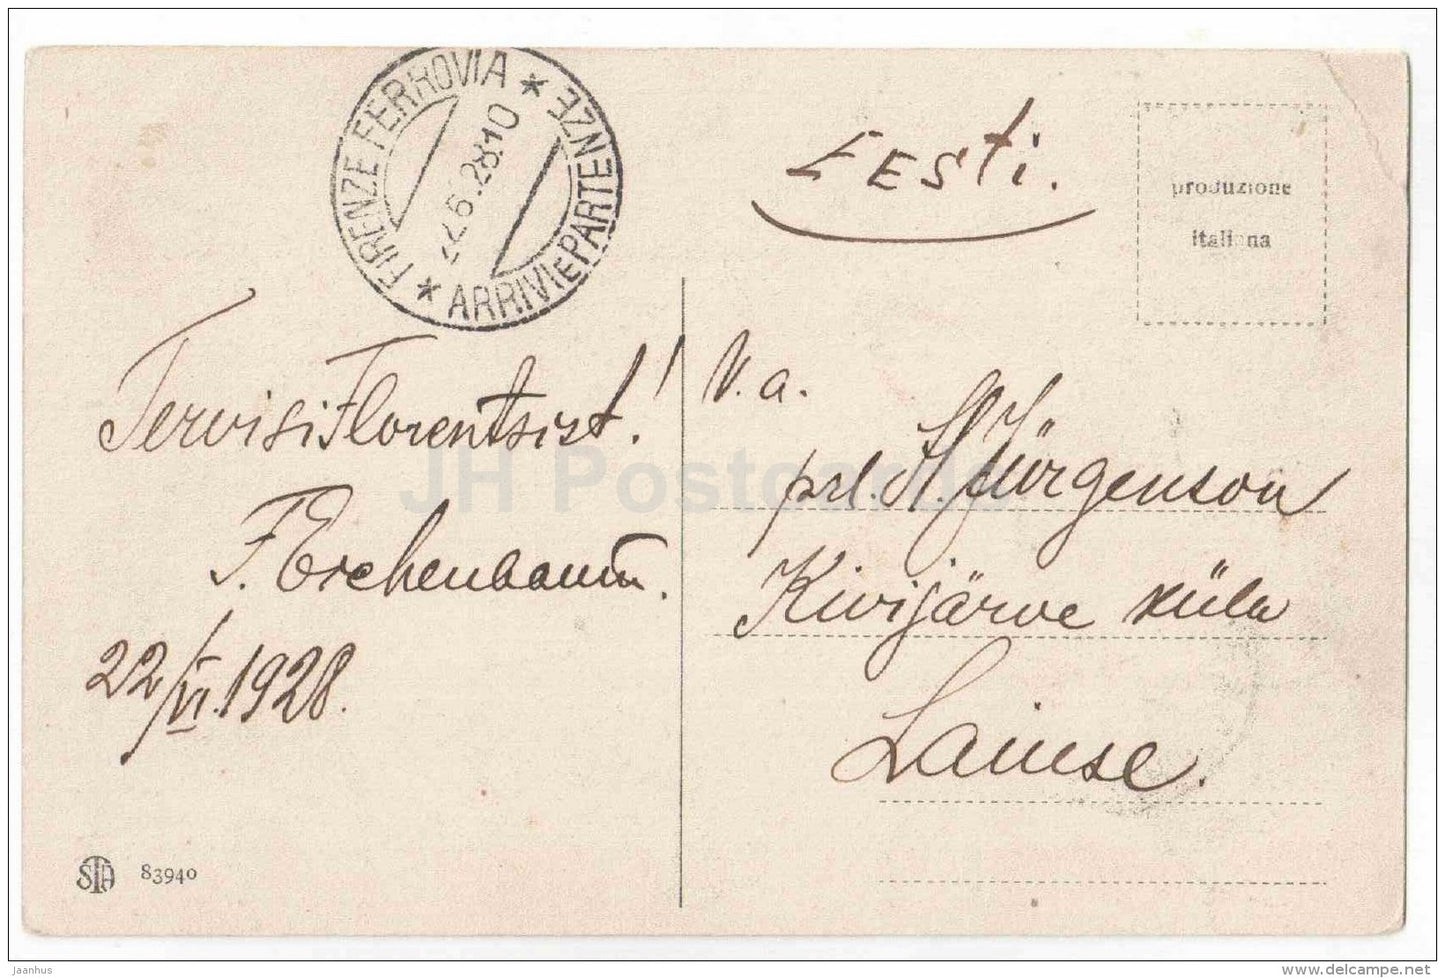 FIRENZE FERROVIA
ARRIVI E PARTENZE
22.6.28.10
Eesti.
produzione
italiana
Tervisi Florentsist!
22/VI.1928.
V.a.
prl. H. Jürgenson
Kivijärve küla
Laiuse.
STA 83940
JH Postcards
Jaanhus
www.delcampe.net